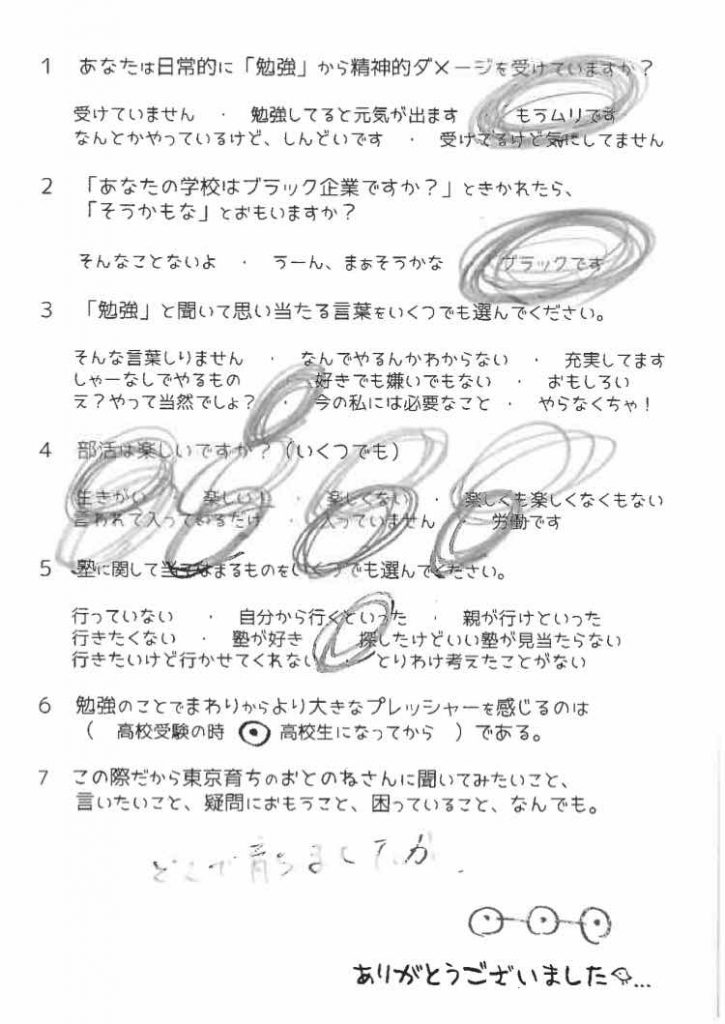 1 あなたは日常的に「勉強」から精神的ダメージを受けていますか?
受けていません ・ 勉強してると元気が出ます ・ もうムリです
なんとかやっているけど、しんどいです ・ 受けてるけど気にしてません
2 「あなたの学校はブラック企業ですか?」ときかれたら、
「そうかもな」とおもいますか?
そんなことないよ ・ うーん、まぁそうかな ブラックです
3 「勉強」と聞いて思い当たる言葉をいくつでも選んでください。
そんな言葉しりません ・ なんでやるんかわからない ・ 充実してます
しゃーなしでやるもの ・ 好きでも嫌いでもない ・ おもしろい
え?やって当然でしょ? ・ 今の私には必要なこと ・ やらなくちゃ!
4 部活は楽しいですか?(いくつでも)
生きがい ・ 楽しい! ・ 楽しくない ・ 楽しくも楽しくなくもない
言われて入っているだけ ・ 入っていません ・ 労働です
5 塾に関して当てはまるものをいくつでも選んでください。
行っていない ・ 自分から行くといった ・ 親が行けといった
行きたくない ・ 塾が好き ・ 探したけどいい塾が見当たらない
行きたいけど行かせてくれない ・ とりわけ考えたことがない
6 勉強のことでまわりからより大きなプレッシャーを感じるのは
( 高校受験の時 ・ 高校生になってから )である。
7 この際だから東京育ちのおとのねさんに聞いてみたいこと、
言いたいこと、疑問におもうこと、困っていること、なんでも。
どこで育ちましたか.
ありがとうございました...